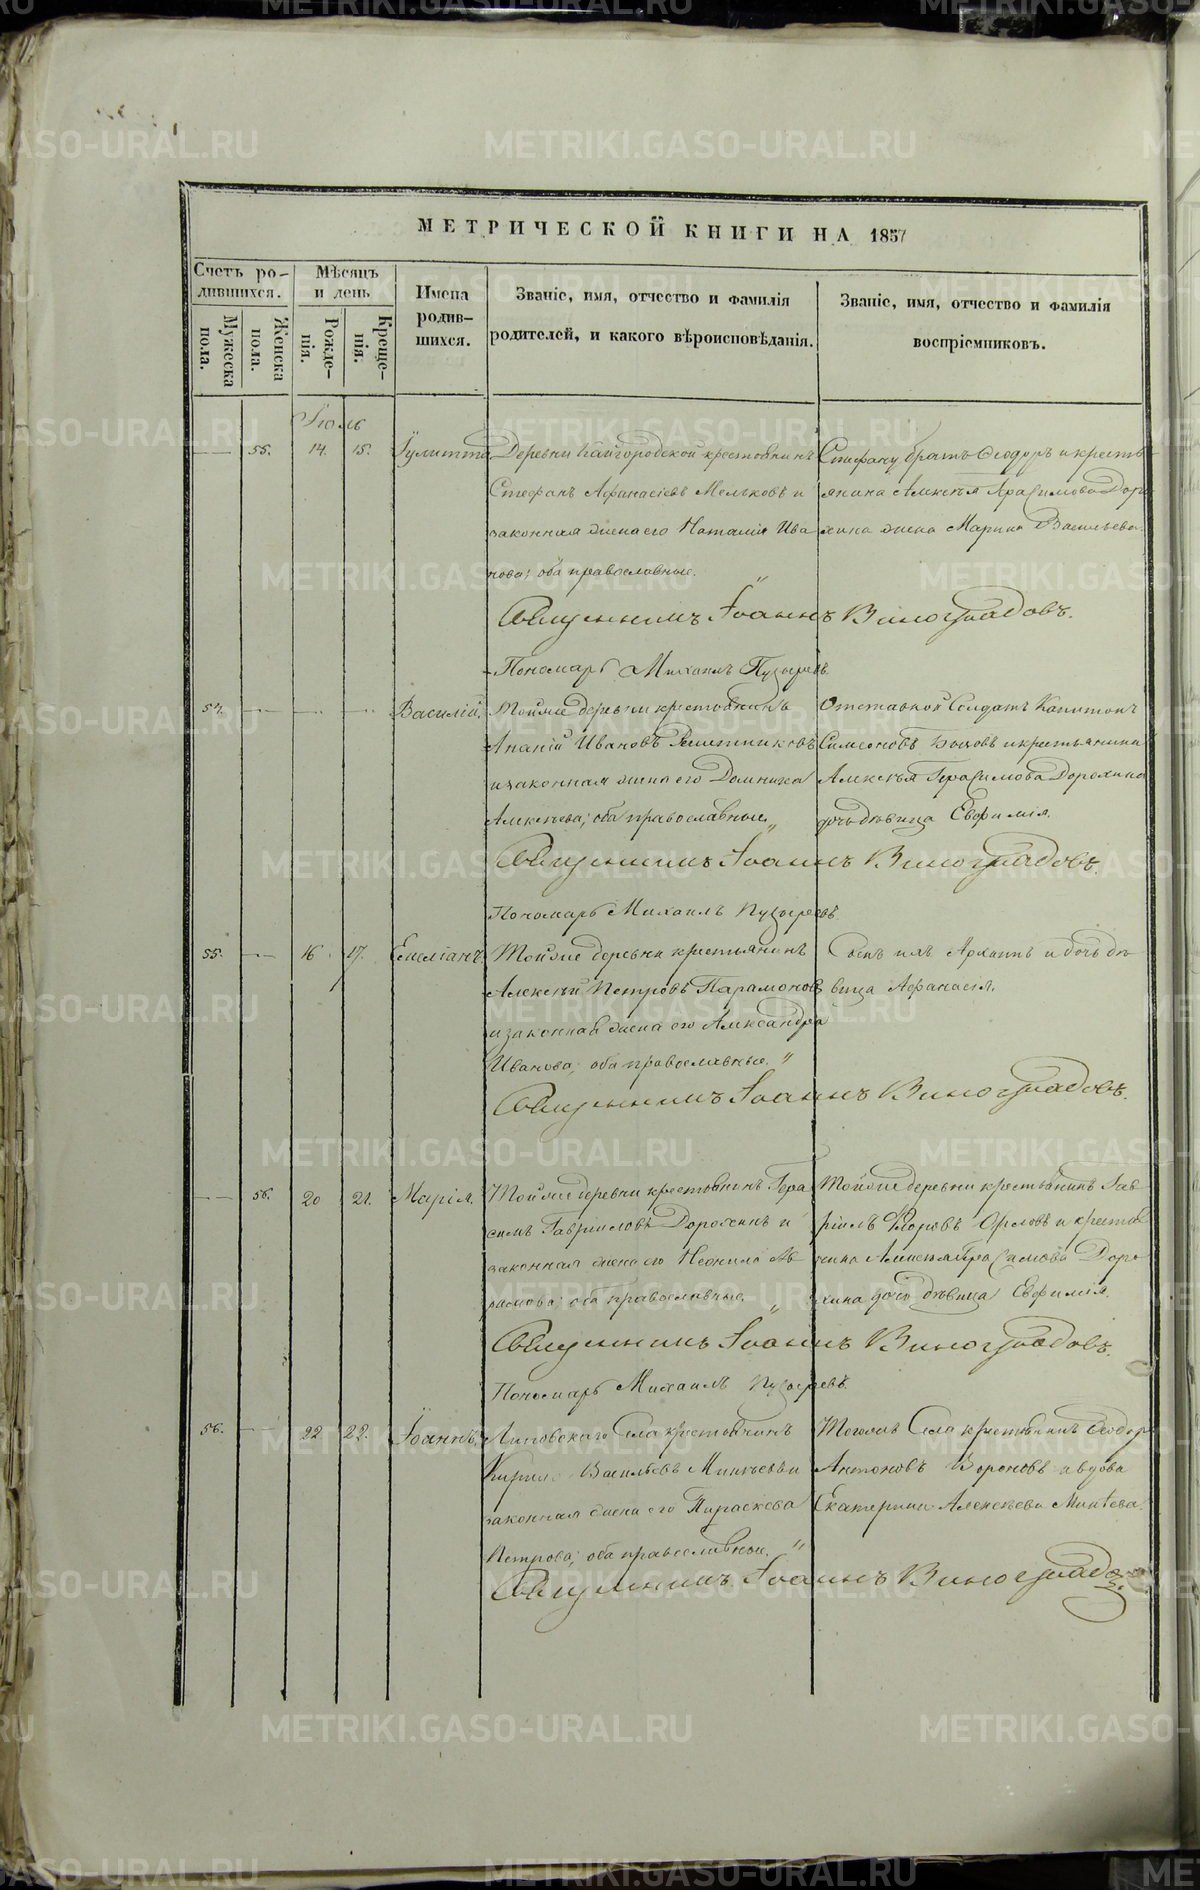 МЕТРИЧЕСКОЙ КНИГИ НА 1857
Счетъ ро-
дившихся.
Мужеска
пола.
Женска
пола.
Мѣсяцъ
и день
Рожде-
нія.
Креще-
нія.
Имена
родив-
шихся.
Званіе, имя, отчество и фамилія
родителей, и какого вѣроисповѣданія.
Званіе, имя, отчество и фамилія
воспріемниковъ.
Іюль
55. 14. 15. Іулитта
Деревни Кайгородской крестьянинъ
Стефанъ Афанасіевъ Мельковъ и
законная жена его Наталія Ива
нова; оба православные.
Стефану братъ Ѳеодоръ и кресть
янина Алексѣя Герасимова Доро
хина жена Марина Васильева.
Священникъ Іоаннъ Виноградовъ.
Пономарь Михаилъ Пузыревъ.
54. Василій.
Тойже деревни крестьянинъ
Ананій Ивановъ Решетниковъ
и законная жена его Домника
Алексѣева; оба православные
Отставной Солдатъ Капитонъ
Симеоновъ и крестьянина
Алексѣя Герасимова Дорохина
дочь дѣвица Евфимія.
Священникъ Іоаннъ Виноградовъ.
Пономарь Михаилъ Пузыревъ.
55. 16. 17. Емеліанъ.
Тойже деревни крестьянинъ
Алексѣй Петровъ Парамоновъ
и законная жена его Александра
Иванова; оба православные.
Сынъ ихъ и дочь дѣ
вица Афанасія.
Священникъ Іоаннъ Виноградовъ.
56. 20 21. Марія.
Тойже деревни крестьянинъ Гера
симъ Гавріиловъ Дорохинъ и
законная жена его Неонила Ав
рамова; оба православные.
Тойже деревни крестьянинъ Гав
ріилъ Орловъ и крестья
нина Алексѣя Герасимова Доро
хина дочь дѣвица Евфимія.
Священникъ Іоаннъ Виноградовъ.
Пономарь Михаилъ Пузыревъ.
56. 22 22. Іоаннъ.
Липовскаго Села крестьянинъ
Кирилъ Васильевъ Минѣевъ и
законная жена его Параскева
Петрова; оба православные.
Тогоже Села крестьянинъ Ѳеодоръ
Антоновъ Вороновъ и вдова
Екатерина Алексѣева Минѣева.
Священникъ Іоаннъ Виноградовъ.
METRIKI.GASO-URAL.RU